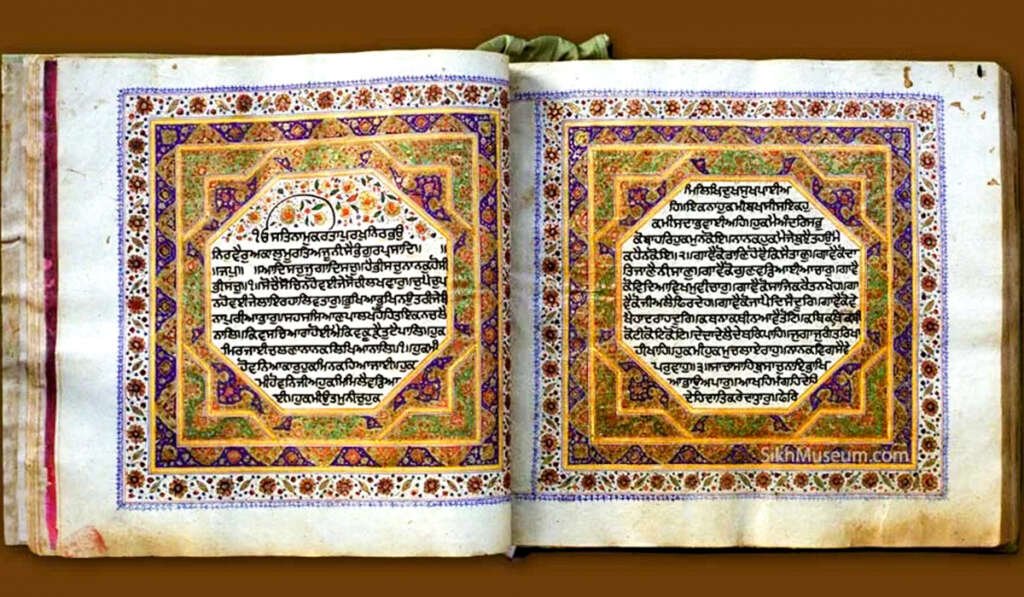 ੴਸਤਿਨਾਮੁਕਰਤਾਪੁਰਖੁਨਿਰਭਉ
ਨਿਰਵੈਰੁਅਕਾਲਮੂਰਤਿਅਜੂਨੀਸੈਭੰਗੁਰਪ੍ਰਸਾਦਿ॥
॥ਜਪੁ॥ ॥ਆਦਿਸਚੁਜੁਗਾਦਿਸਚੁ॥ਹੈਭੀਸਚੁਨਾਨਕਹੋਸੀ
ਭੀਸਚੁ॥੧॥ਸੋਚੈਸੋਚਿਨਹੋਵਈਜੇਸੋਚੀਲਖਵਾਰ॥ਚੁਪੈਚੁਪ
ਨਹੋਵਈਜੇਲਾਇਰਹਾਲਿਵਤਾਰ॥ਭੁਖਿਆਭੁਖਨਉਤਰੀਜੇਬੰ
ਨਾਪੁਰੀਆਭਾਰ॥ਸਹਸਸਿਆਣਪਾਲਖਹੋਹਿਤਇਕਨਚਲੈ
ਨਾਲਿ॥ਕਿਵਸਚਿਆਰਾਹੋਈਐਕਿਵਕੂੜੈਤੁਟੈਪਾਲਿ॥ਹੁਕ
ਮਿਰਜਾਈਚਲਣਾਨਾਨਕਲਿਖਿਆਨਾਲਿ॥੧॥ਹੁਕਮੀ
ਹੋਵਨਿਆਕਾਰਹੁਕਮਿਨਕਹਿਆਜਾਈ॥ਹੁਕ
ਮੀਹੋਵਨਿਜੀਅਹੁਕਮਿਮਿਲੈਵਡਿਆ
ਈ॥ਹੁਕਮੀਉਤਮੁਨੀਚੁਹੁਕ
ਮਿਲਿਖਿਦੁਖਸੁਖਪਾਈਅ
ਹਿ॥ਇਕਨਾਹੁਕਮੀਬਖਸੀਸਇਕਿਹੁ
ਕਮੀਸਦਾਭਵਾਈਅਹਿ॥ਹੁਕਮੈਅੰਦਰਿਸਭੁ
ਕੋਬਾਹਰਿਹੁਕਮਨਕੋਇ॥ਨਾਨਕਹੁਕਮੈਜੇਬੁਝੈਤਹਉਮੈ
ਕਹੈਨਕੋਇ॥੨॥ਗਾਵੈਕੋਤਾਣੁਹੋਵੈਕਿਸੈਤਾਣੁ॥ਗਾਵੈਕੋਦਾ
ਤਿਜਾਣੈਨੀਸਾਣੁ॥ਗਾਵੈਕੋਗੁਣਵਡਿਆਈਆਚਾਰ॥ਗਾਵੈ
ਕੋਵਿਦਿਆਵਿਖਮੁਵੀਚਾਰੁ॥ਗਾਵੈਕੋਸਾਜਿਕਰੇਤਨੁਖੇਹ॥ਗਾ
ਵੈਕੋਜੀਅਲੈਫਿਰਿਦੇਹ॥ਗਾਵੈਕੋਜਾਪੈਦਿਸੈਦੂਰਿ॥ਗਾਵੈਕੋਵੇ
ਖੈਹਾਦਰਾਹਦੂਰਿ॥ਕਥਨਾਕਥੀਨਆਵੈਤੋਟਿ॥ਕਥਿਕਥਿਕਥੀ
ਕੋਟੀਕੋਟਿਕੋਟਿ॥ਦੇਦਾਦੇਲੈਦੇਥਕਿਪਾਹਿ॥ਜੁਗਾਜੁਗੰਤਰਿਖਾ
ਹੀਖਾਹਿ॥ਹੁਕਮੀਹੁਕਮੁਚਲਾਏਰਾਹੁ॥ਨਾਨਕਵਿਗਸੈਵੇ
ਪਰਵਾਹੁ॥੩॥ਸਾਚਾਸਾਹਿਬੁਸਾਚੁਨਾਇਭਾਖਿ
ਆਭਾਉਅਪਾਰੁ॥ਆਖਹਿਮੰਗਹਿਦੇਹਿ
ਦੇਹਿਦਾਤਿਕਰੇਦਾਤਾਰੁ॥ਫੇਰਿ
SikhMuseum.com